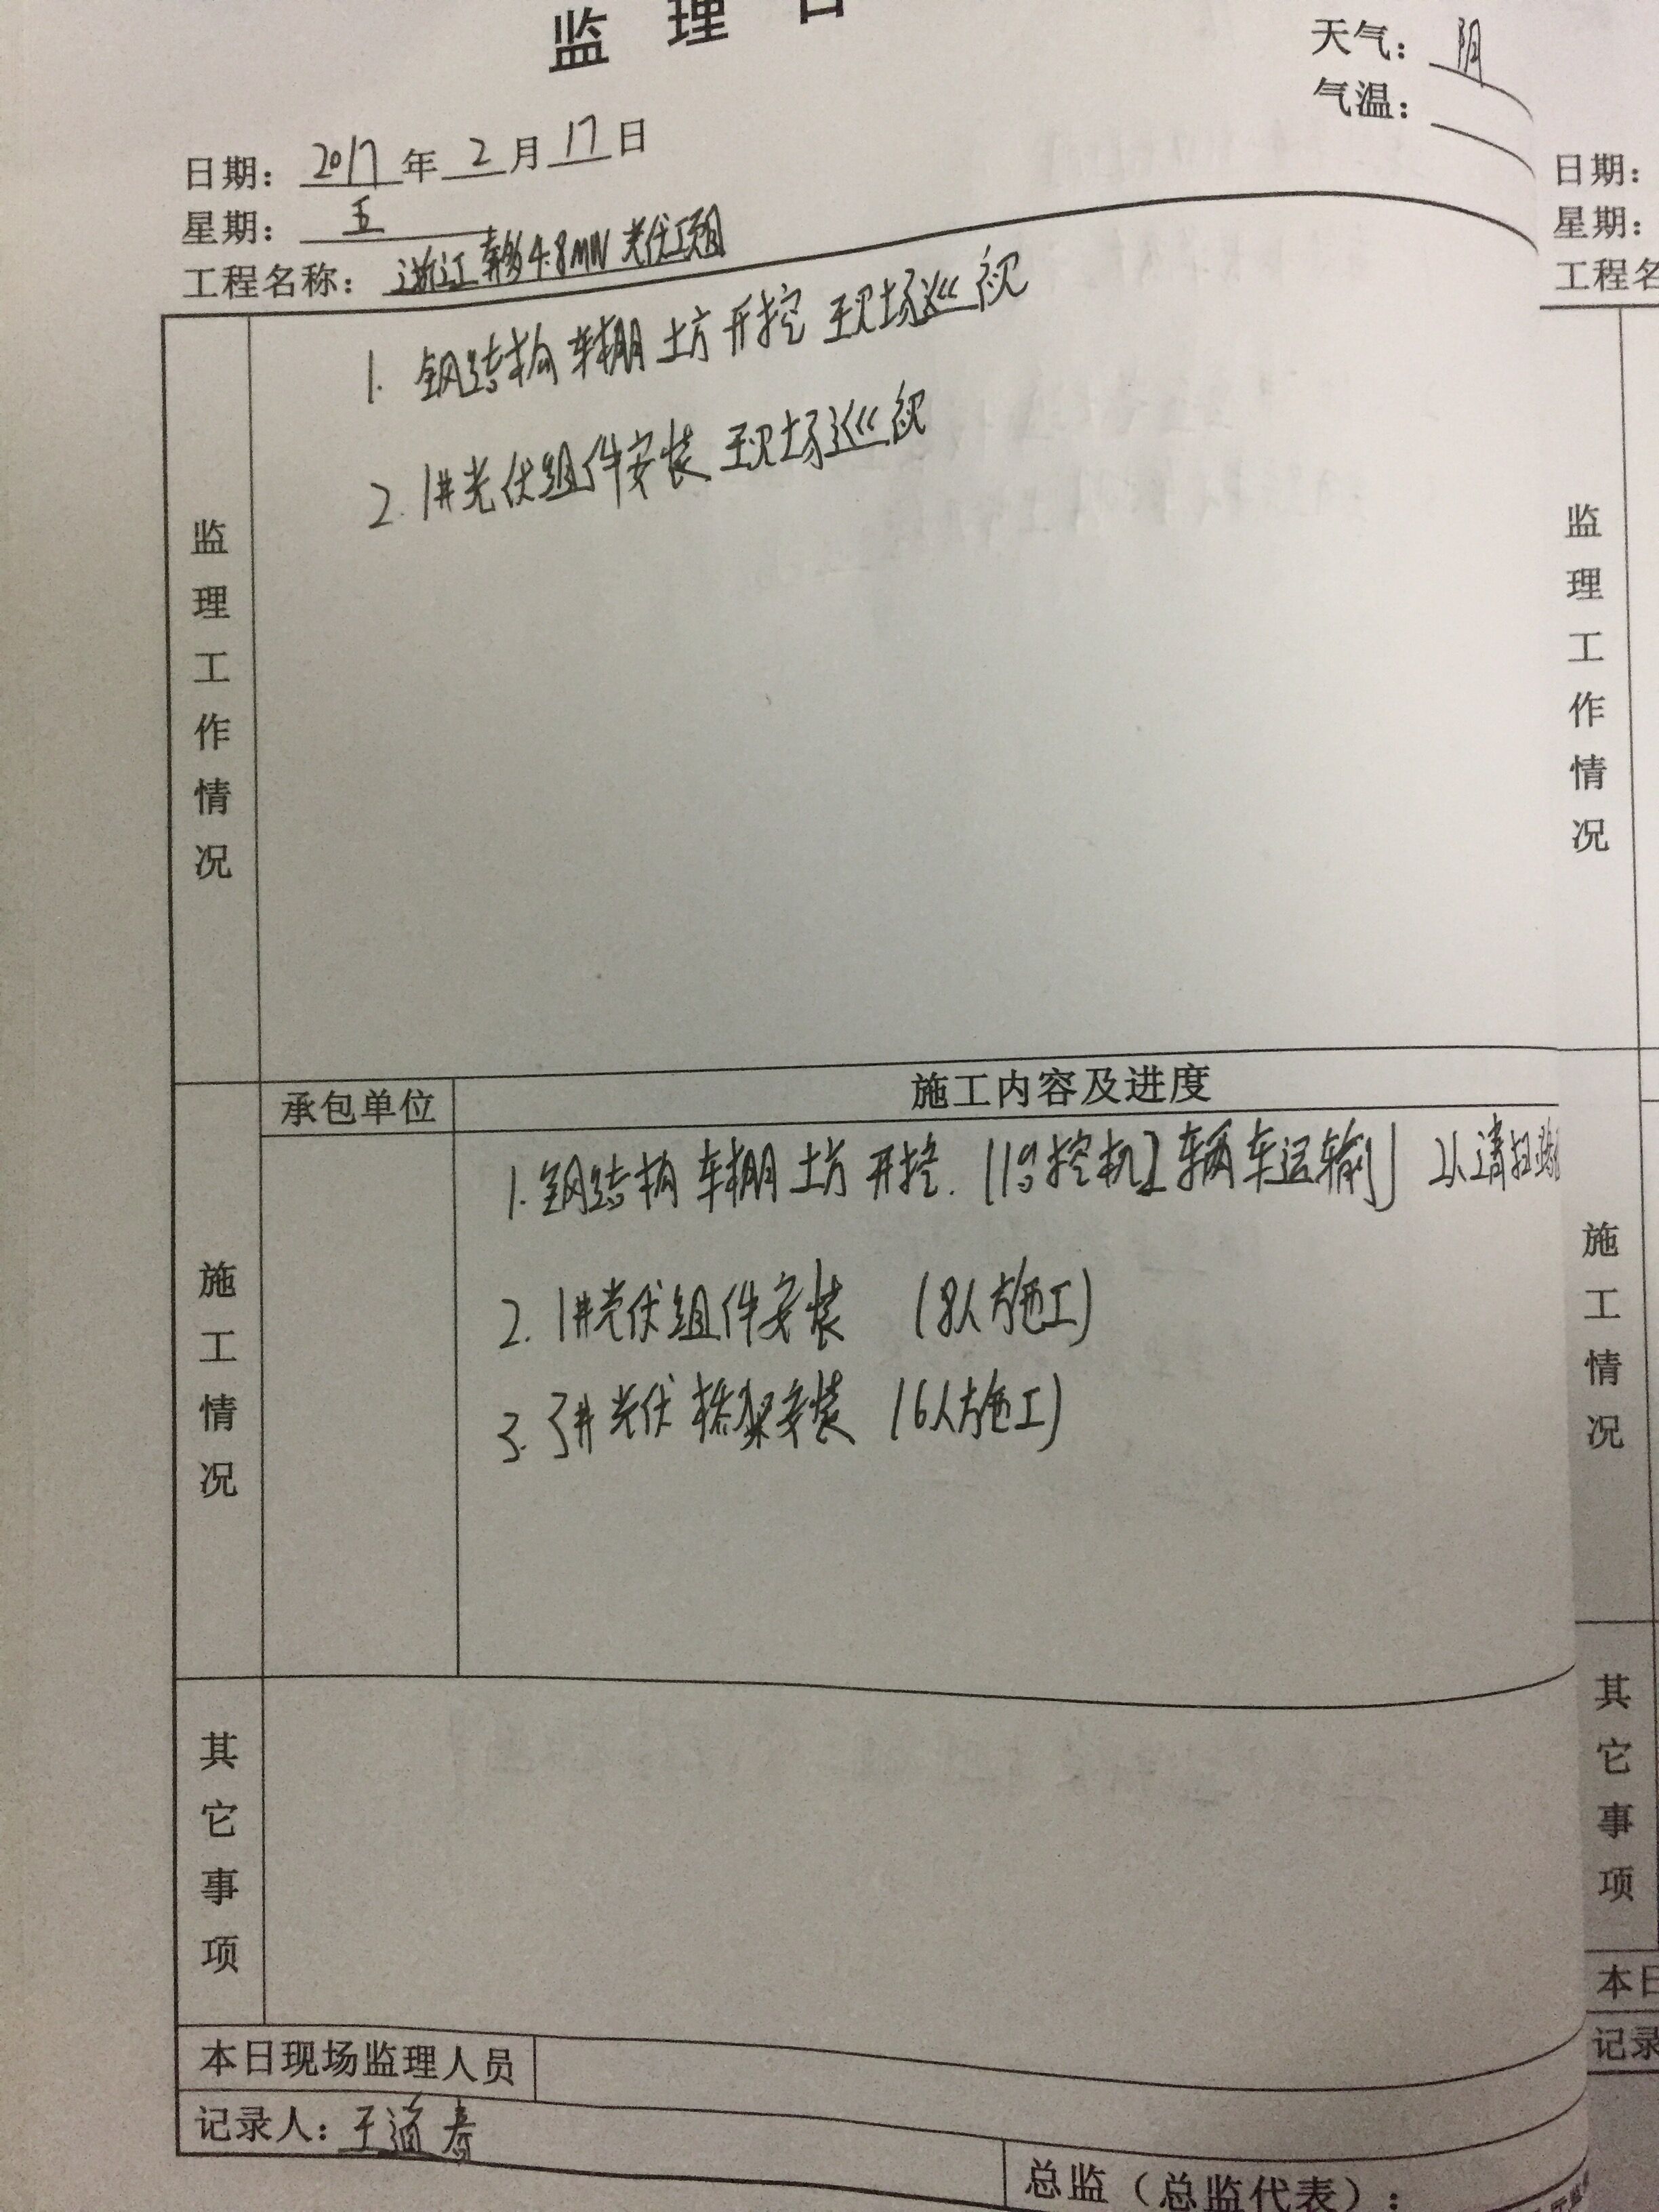 监 理 日
天气：阴
气温：
日期：2017年2月17日
星期：五
工程名称：浙江 4.8MW光伏项目
监理工作情况
1. 钢结构车棚土方开挖现场巡视
2. 1#光伏组件安装现场巡视
施工情况
承包单位
施工内容及进度
1. 钢结构车棚土方开挖.(1台挖机2辆车运输) 2人清扫
2. 1#光伏组件安装 (8人施工)
3. 3#光伏桥架安装 (6人施工)
其它事项
本日现场监理人员
记录人：王道春
总监（总监代表）：
日期：
星期：
工程名
监理工作情况
施工情况
其它事项
本日
记录